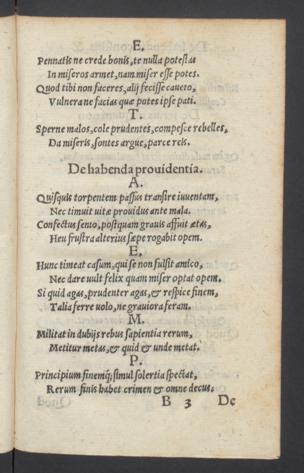 E.
Pennatis ne crede bonis, te nulla potestas
In miseros armet, nam miser esse potes.
Quod tibi non faceres, alij fecisse caueto,
Vulnera ne facias quæ potes ipse pati.
T.
Sperne malos, cole prudentes, compesce rebelles,
Da miseris, sontes argue, parce reis.
De habenda prouidentia.
A.
Quisquis torpentem passus transire iuuentam,
Nec timuit uitæ prouidus ante mala.
Confectus senio, postquam grauis affuit ætas,
Heu frustra alterius sæpe rogabit opem.
E.
Hunc timeat casum, qui se non fulsit amico,
Nec dare uult felix quam miser optat opem.
Si quid agas, prudenter agas, & respice finem,
Talia ferre uolo, ne grauiora feram.
M.
Militat in dubijs rebus sapientia rerum,
Metitur metas, & quid & unde metat.
P.
Principium finemq; simul solertia spectat,
Rerum finis habet crimen & omne decus.
B 3 De